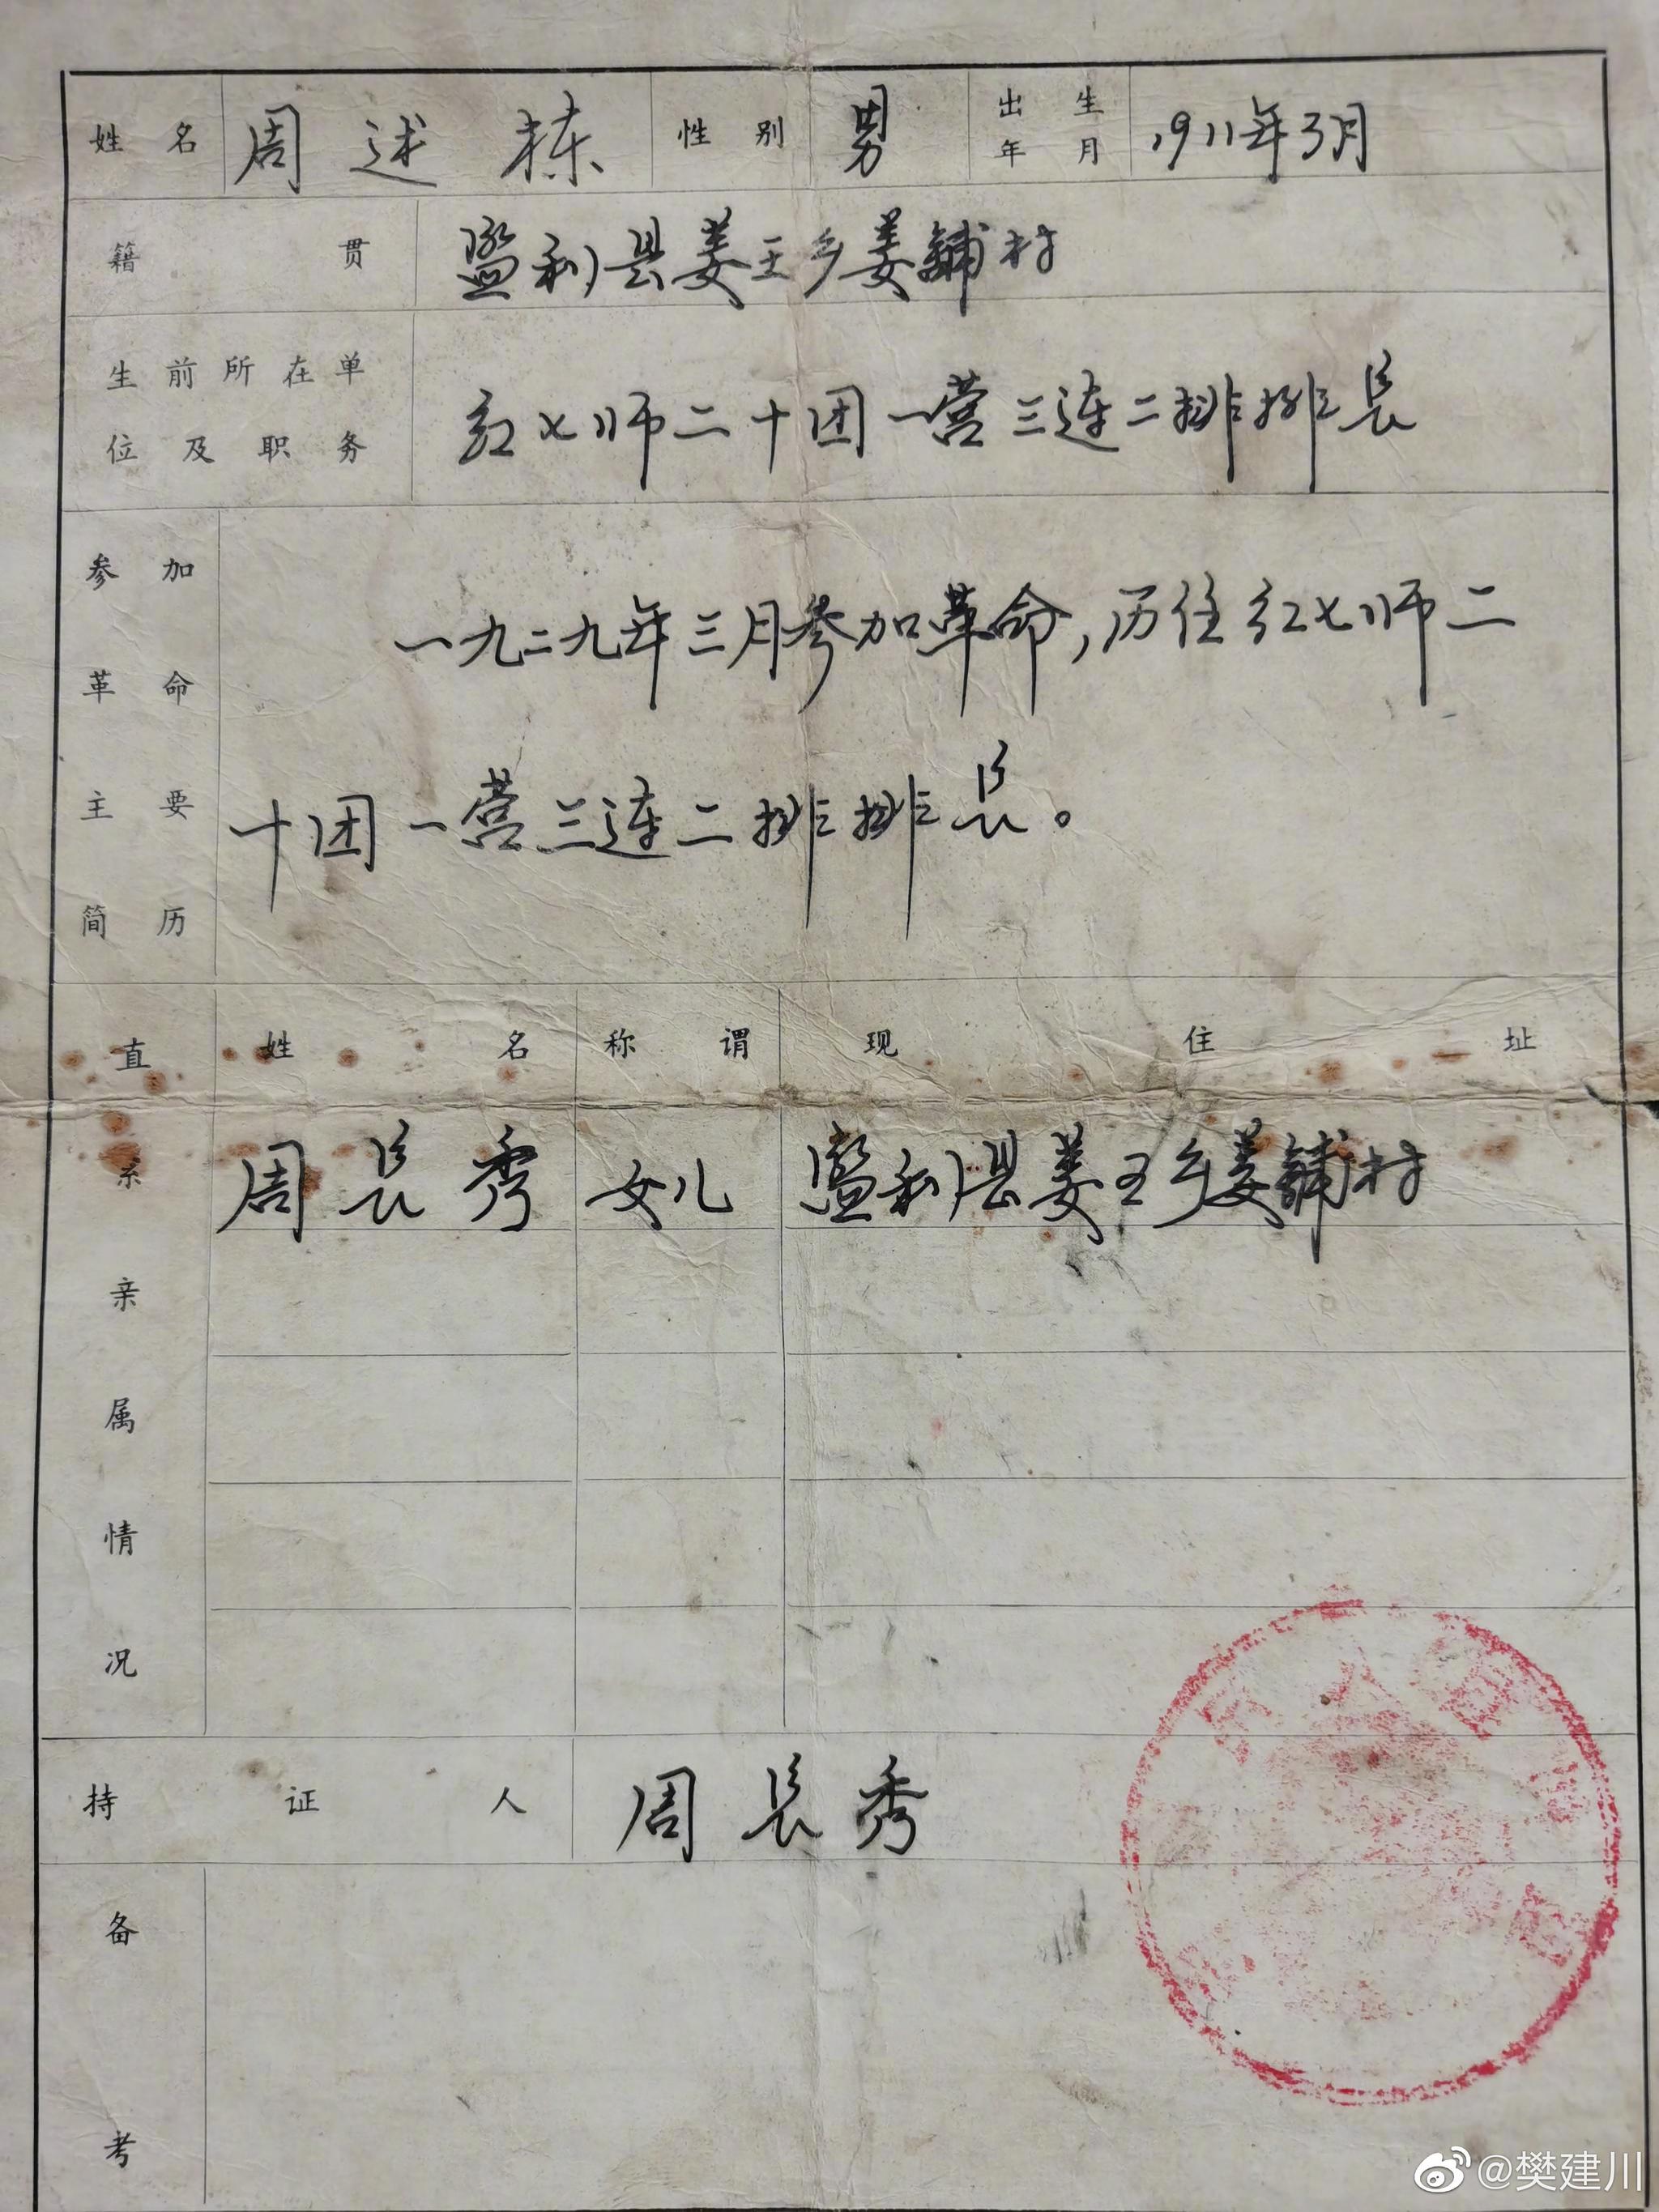 姓名 周述栋 性别 男 出生年月 1911年3月
籍贯 监利县姜王乡姜铺村
生前所在单位及职务 红七师二十团一营三连二排排长
参加革命主要简历 一九二九年三月参加革命,历任红七师二
十团一营三连二排排长。
直系亲属情况 姓名 称谓 现住址
周长秀 女儿 监利县姜王乡姜铺村
持证人 周长秀
备考
@樊建川